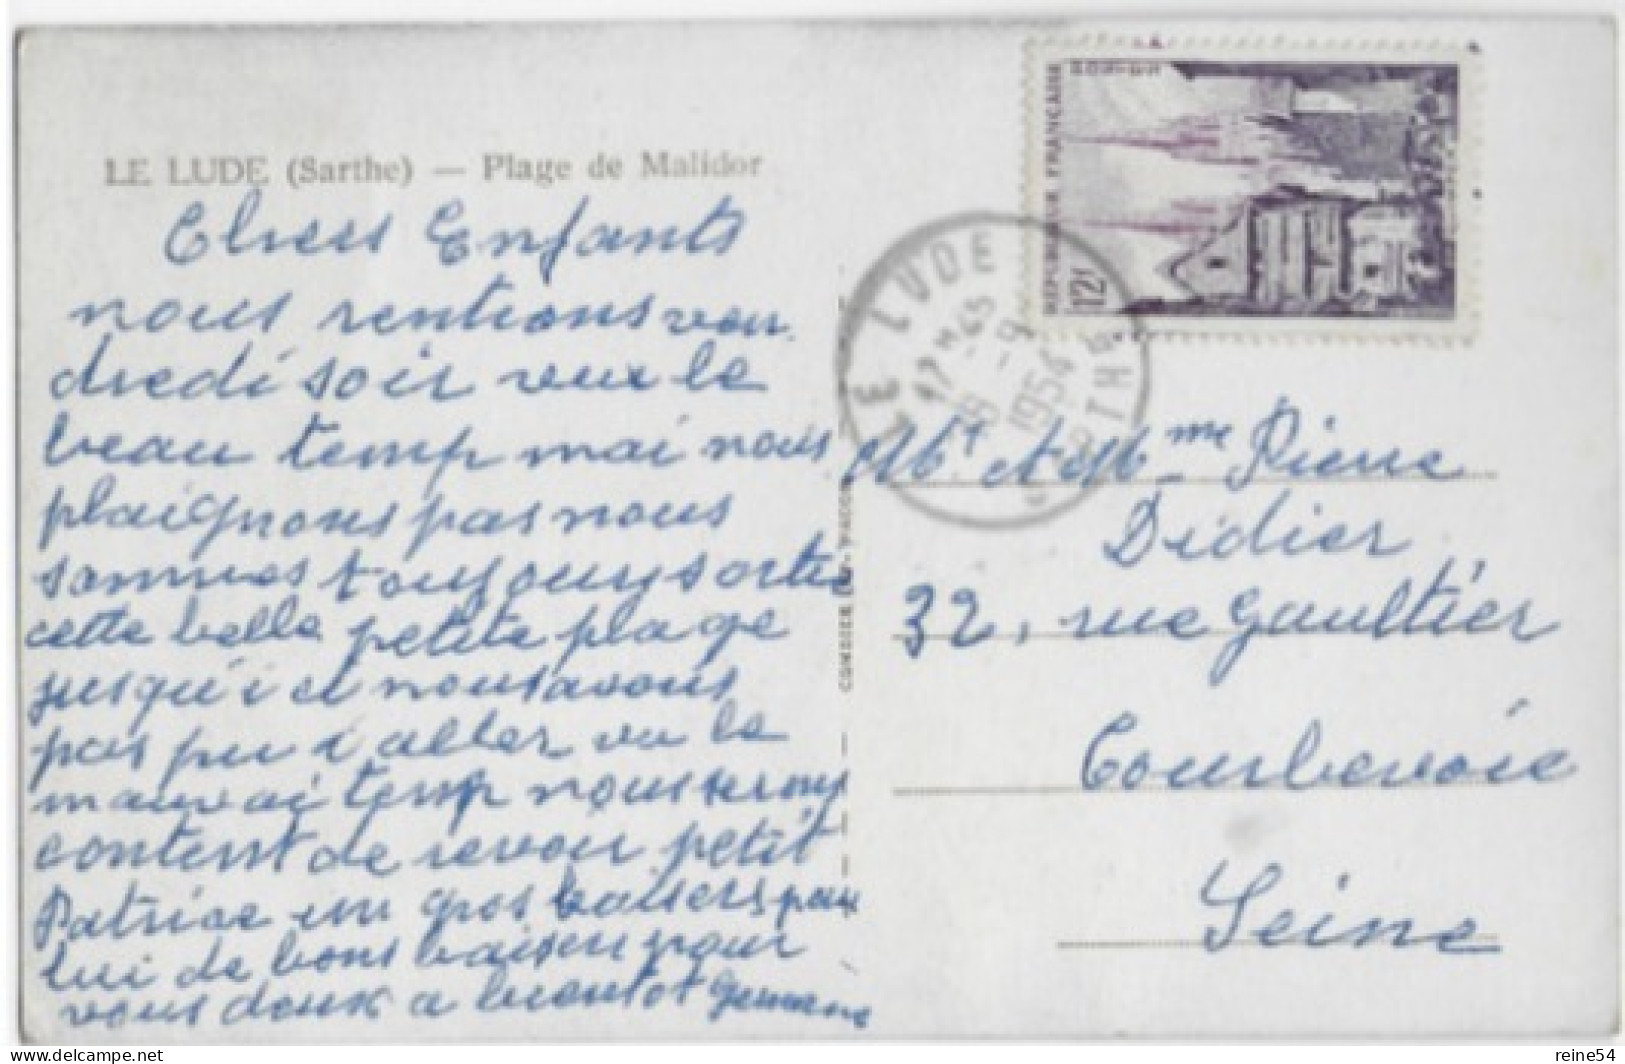 LE LUDE (Sarthe) — Plage de Malidor
Chers Enfants
nous rentrons ven
dredi soir veux le
beau temp mai nous
plaignons pas nous
sommes toujours sortie
cette belle petite plage
jusqu'ici nous avons
pas pu i aller vu le
mauvai temp nous serons
content de revoir petit
Patrice un gros baisers pour
lui de bons baisers pour
vous deux a bientot Germaine
REPUBLIQUE FRANÇAISE
12f
LE LUDE
17H45
9
1954
SARTHE
Mr et Mme Pierre
Didier
32, rue Gaultier
Courbevoie
Seine
COMBIER IMP. MACON
reine54